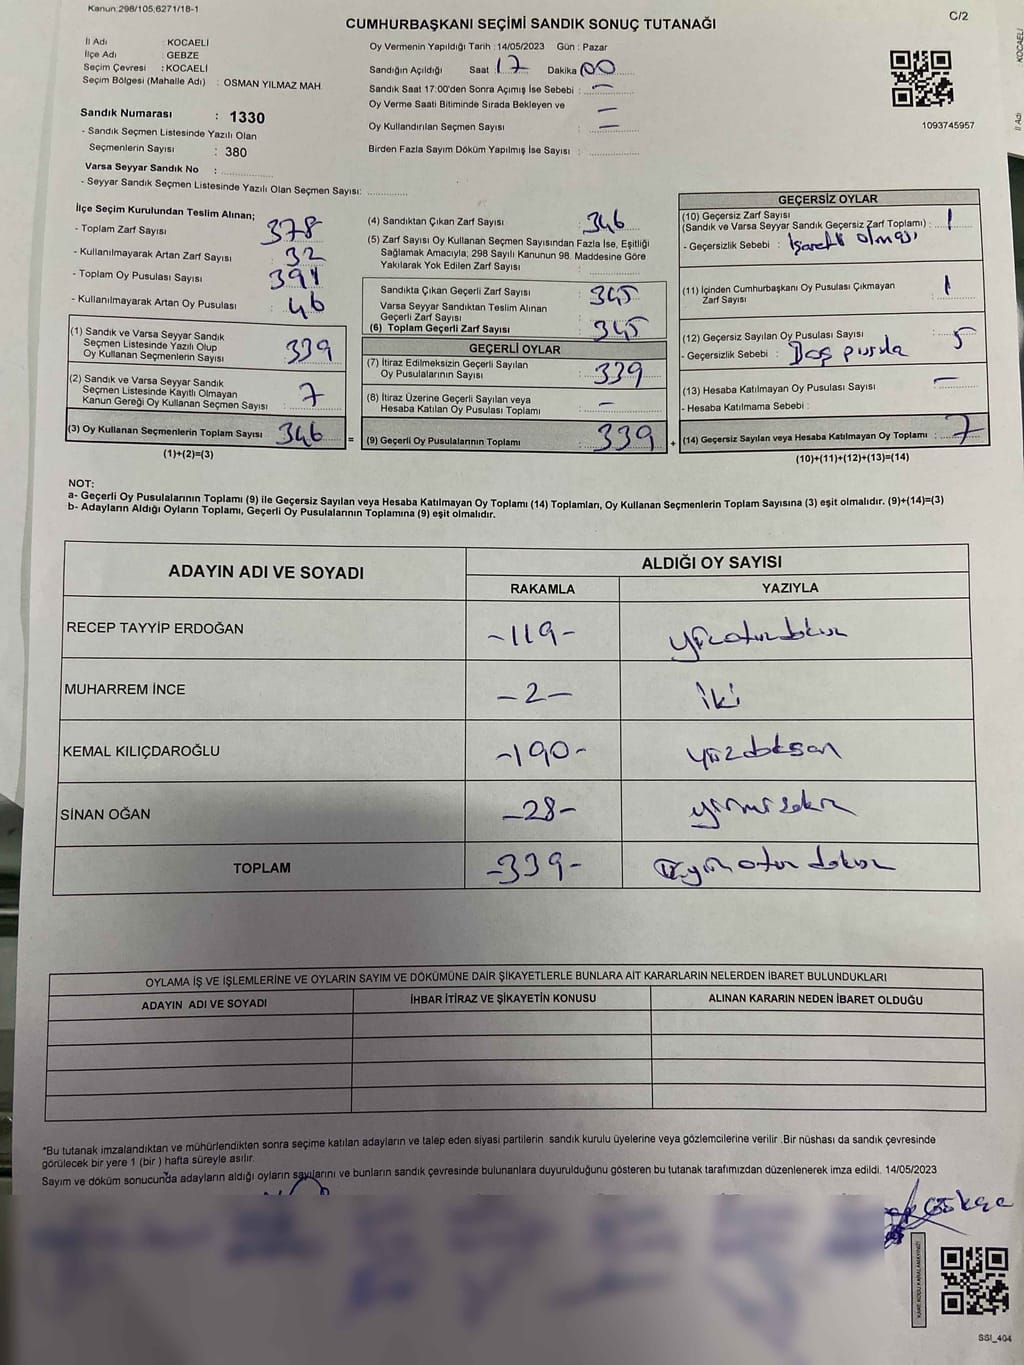 Kanun:298/105,6271/18-1
C/2
CUMHURBAŞKANI SEÇİMİ SANDIK SONUÇ TUTANAĞI
İl Adı : KOCAELİ
İlçe Adı : GEBZE
Seçim Çevresi : KOCAELİ
Seçim Bölgesi (Mahalle Adı) : OSMAN YILMAZ MAH.
Sandık Numarası : 1330
- Sandık Seçmen Listesinde Yazılı Olan
Seçmenlerin Sayısı : 380
Varsa Seyyar Sandık No :
- Seyyar Sandık Seçmen Listesinde Yazılı Olan Seçmen Sayısı:
Oy Vermenin Yapıldığı Tarih :14/05/2023 Gün : Pazar
Sandığın Açıldığı Saat : 17 Dakika : 00
Sandık Saat 17:00'den Sonra Açımış İse Sebebi : —
Oy Verme Saati Bitiminde Sırada Bekleyen ve —
Oy Kullandırılan Seçmen Sayısı : —
Birden Fazla Sayım Döküm Yapılmış İse Sayısı :
1093745957
KOCAELİ
İl Adı
İlçe Seçim Kurulundan Teslim Alınan;
- Toplam Zarf Sayısı : 378
- Kullanılmayarak Artan Zarf Sayısı : 32
- Toplam Oy Pusulası Sayısı : 391
- Kullanılmayarak Artan Oy Pusulası : 46
(1) Sandık ve Varsa Seyyar Sandık
Seçmen Listesinde Yazılı Olup
Oy Kullanan Seçmenlerin Sayısı : 339
(2) Sandık ve Varsa Seyyar Sandık
Seçmen Listesinde Kayıtlı Olmayan
Kanun Gereği Oy Kullanan Seçmen Sayısı : 7
(3) Oy Kullanan Seçmenlerin Toplam Sayısı : 346 =
(1)+(2)=(3)
(4) Sandıktan Çıkan Zarf Sayısı : 346
(5) Zarf Sayısı Oy Kullanan Seçmen Sayısından Fazla İse, Eşitliği
Sağlamak Amacıyla; 298 Sayılı Kanunun 98. Maddesine Göre
Yakılarak Yok Edilen Zarf Sayısı :
Sandıkta Çıkan Geçerli Zarf Sayısı : 345
Varsa Seyyar Sandıktan Teslim Alınan
Geçerli Zarf Sayısı :
(6) Toplam Geçerli Zarf Sayısı : 345
GEÇERLİ OYLAR
(7) İtiraz Edilmeksizin Geçerli Sayılan
Oy Pusulalarının Sayısı : 339
(8) İtiraz Üzerine Geçerli Sayılan veya
Hesaba Katılan Oy Pusulası Toplamı : —
(9) Geçerli Oy Pusulalarının Toplamı : 339 +
GEÇERSİZ OYLAR
(10) Geçersiz Zarf Sayısı
(Sandık ve Varsa Seyyar Sandık Geçersiz Zarf Toplamı) : 1
- Geçersizlik Sebebi : İşaretli olması
(11) İçinden Cumhurbaşkanı Oy Pusulası Çıkmayan
Zarf Sayısı : 1
(12) Geçersiz Sayılan Oy Pusulası Sayısı : 5
- Geçersizlik Sebebi : Boş pusula
(13) Hesaba Katılmayan Oy Pusulası Sayısı : —
- Hesaba Katılmama Sebebi :
(14) Geçersiz Sayılan veya Hesaba Katılmayan Oy Toplamı : 7
(10)+(11)+(12)+(13)=(14)
NOT:
a- Geçerli Oy Pusulalarının Toplamı (9) ile Geçersiz Sayılan veya Hesaba Katılmayan Oy Toplamı (14) Toplamları, Oy Kullanan Seçmenlerin Toplam Sayısına (3) eşit olmalıdır. (9)+(14)=(3)
b- Adayların Aldığı Oyların Toplamı, Geçerli Oy Pusulalarının Toplamına (9) eşit olmalıdır.
ADAYIN ADI VE SOYADI
ALDIĞI OY SAYISI
RAKAMLA YAZIYLA
RECEP TAYYİP ERDOĞAN -119- yüzondokuz
MUHARREM İNCE -2- iki
KEMAL KILIÇDAROĞLU -190- yüzdoksan
SİNAN OĞAN -28- yirmisekiz
TOPLAM -339- Üçyüzotuzdokuz
OYLAMA İŞ VE İŞLEMLERİNE VE OYLARIN SAYIM VE DÖKÜMÜNE DAİR ŞİKAYETLERLE BUNLARA AİT KARARLARIN NELERDEN İBARET BULUNDUKLARI
ADAYIN ADI VE SOYADI İHBAR İTİRAZ VE ŞİKAYETİN KONUSU ALINAN KARARIN NEDEN İBARET OLDUĞU
*Bu tutanak imzalandıktan ve mühürlendikten sonra seçime katılan adayların ve talep eden siyasi partilerin sandık kurulu üyelerine veya gözlemcilerine verilir .Bir nüshası da sandık çevresinde
görülecek bir yere 1 (bir ) hafta süreyle asılır.
Sayım ve döküm sonucunda adayların aldığı oyların sayılarını ve bunların sandık çevresinde bulunanlara duyurulduğunu gösteren bu tutanak tarafımızdan düzenlenerek imza edildi. 14/05/2023
SSI_404